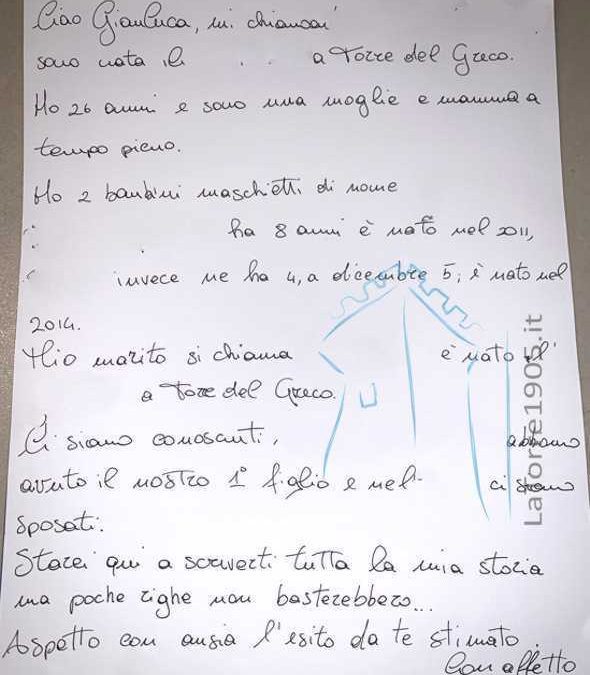 Ciao Gianluca, mi chiamai
sono nata il . . a Torre del Greco.
Ho 26 anni e sono una moglie e mamma a
tempo pieno.
Ho 2 bambini maschietti di nome
ha 8 anni è nato nel 2011,
invece ne ha 4, a dicembre 5, è nato nel
2014.
Mio marito si chiama è nato il
a Torre del Greco.
Ci siamo conosciuti, abbiamo
avuto il nostro 1° figlio e nel ci siamo
sposati.
Starei qui a scriverti tutta la mia storia
ma poche righe non basterebbero...
Aspetto con ansia l'esito da te stimato.
Con affetto
Latorre1905.it